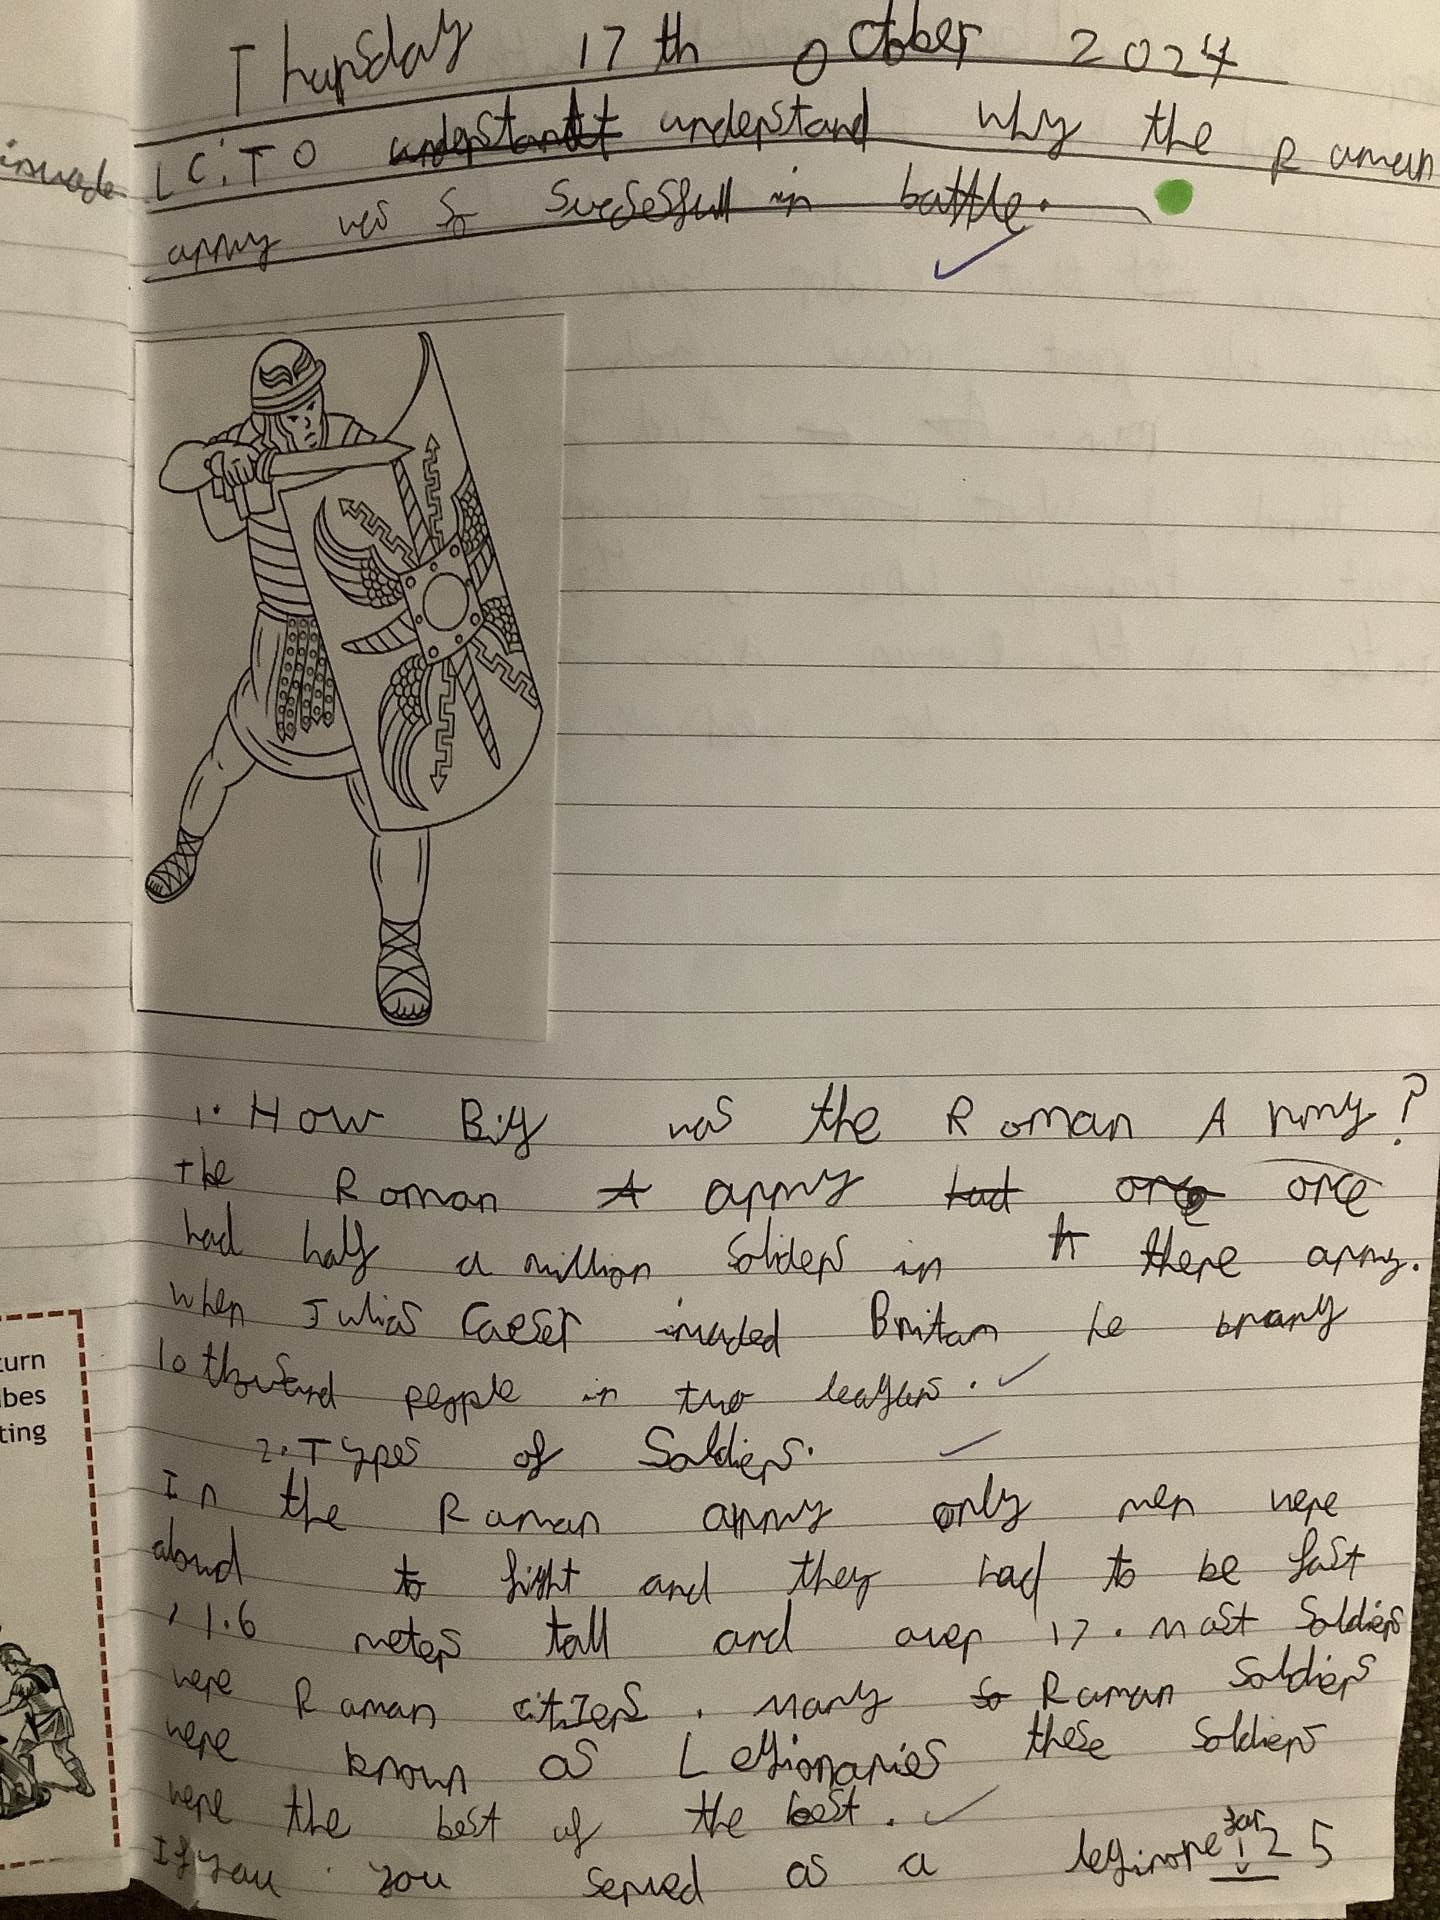 Thursday 17th October 2024
invade
LC: To understant understand why the Roman
army was so sucsesfull in battle.
1. How Big was the Roman Army?
the Roman A army had once once
had half a million soliders in th there army.
When Julias Caeser invaded Britan he brang
10 thousand people in two
2. Types of Soldiers.
In the Roman army only men were
aloud to fight and they had to be fast
, 1.6 meters tall and over 17. Most Soldiers
were Roman citizens. Many so Roman Soldiers
were known as Legionaries these Soldiers
were the best of the best.
If you you served as a for 25
turn
ibes
ting